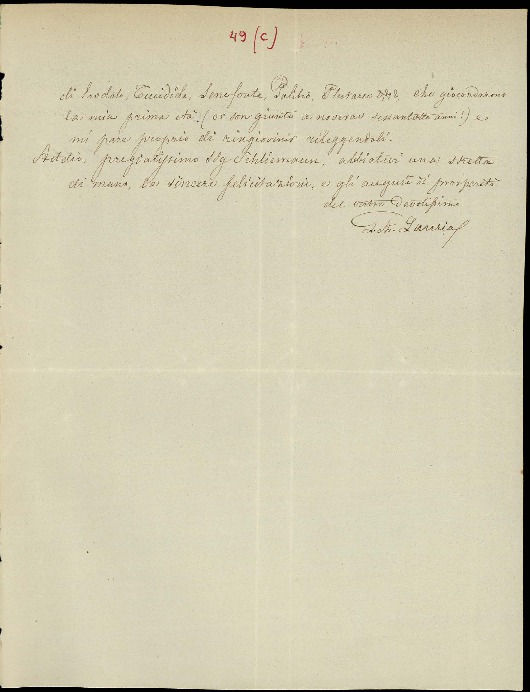 49 (c)
di Erodoto, Tucidide, Senofonte, Polibio, Plutarco che giocondarono
la mia prima età (or son giunto a noverar anni!) e
mi pare proprio di ringiovinir rileggendoli.
Addio, pregiatissimo Sig Schliemann, abbiatevi una stretta
di mano, le sincere felicitazioni, e gli augurii di prosperità
del vostro Devotissimo